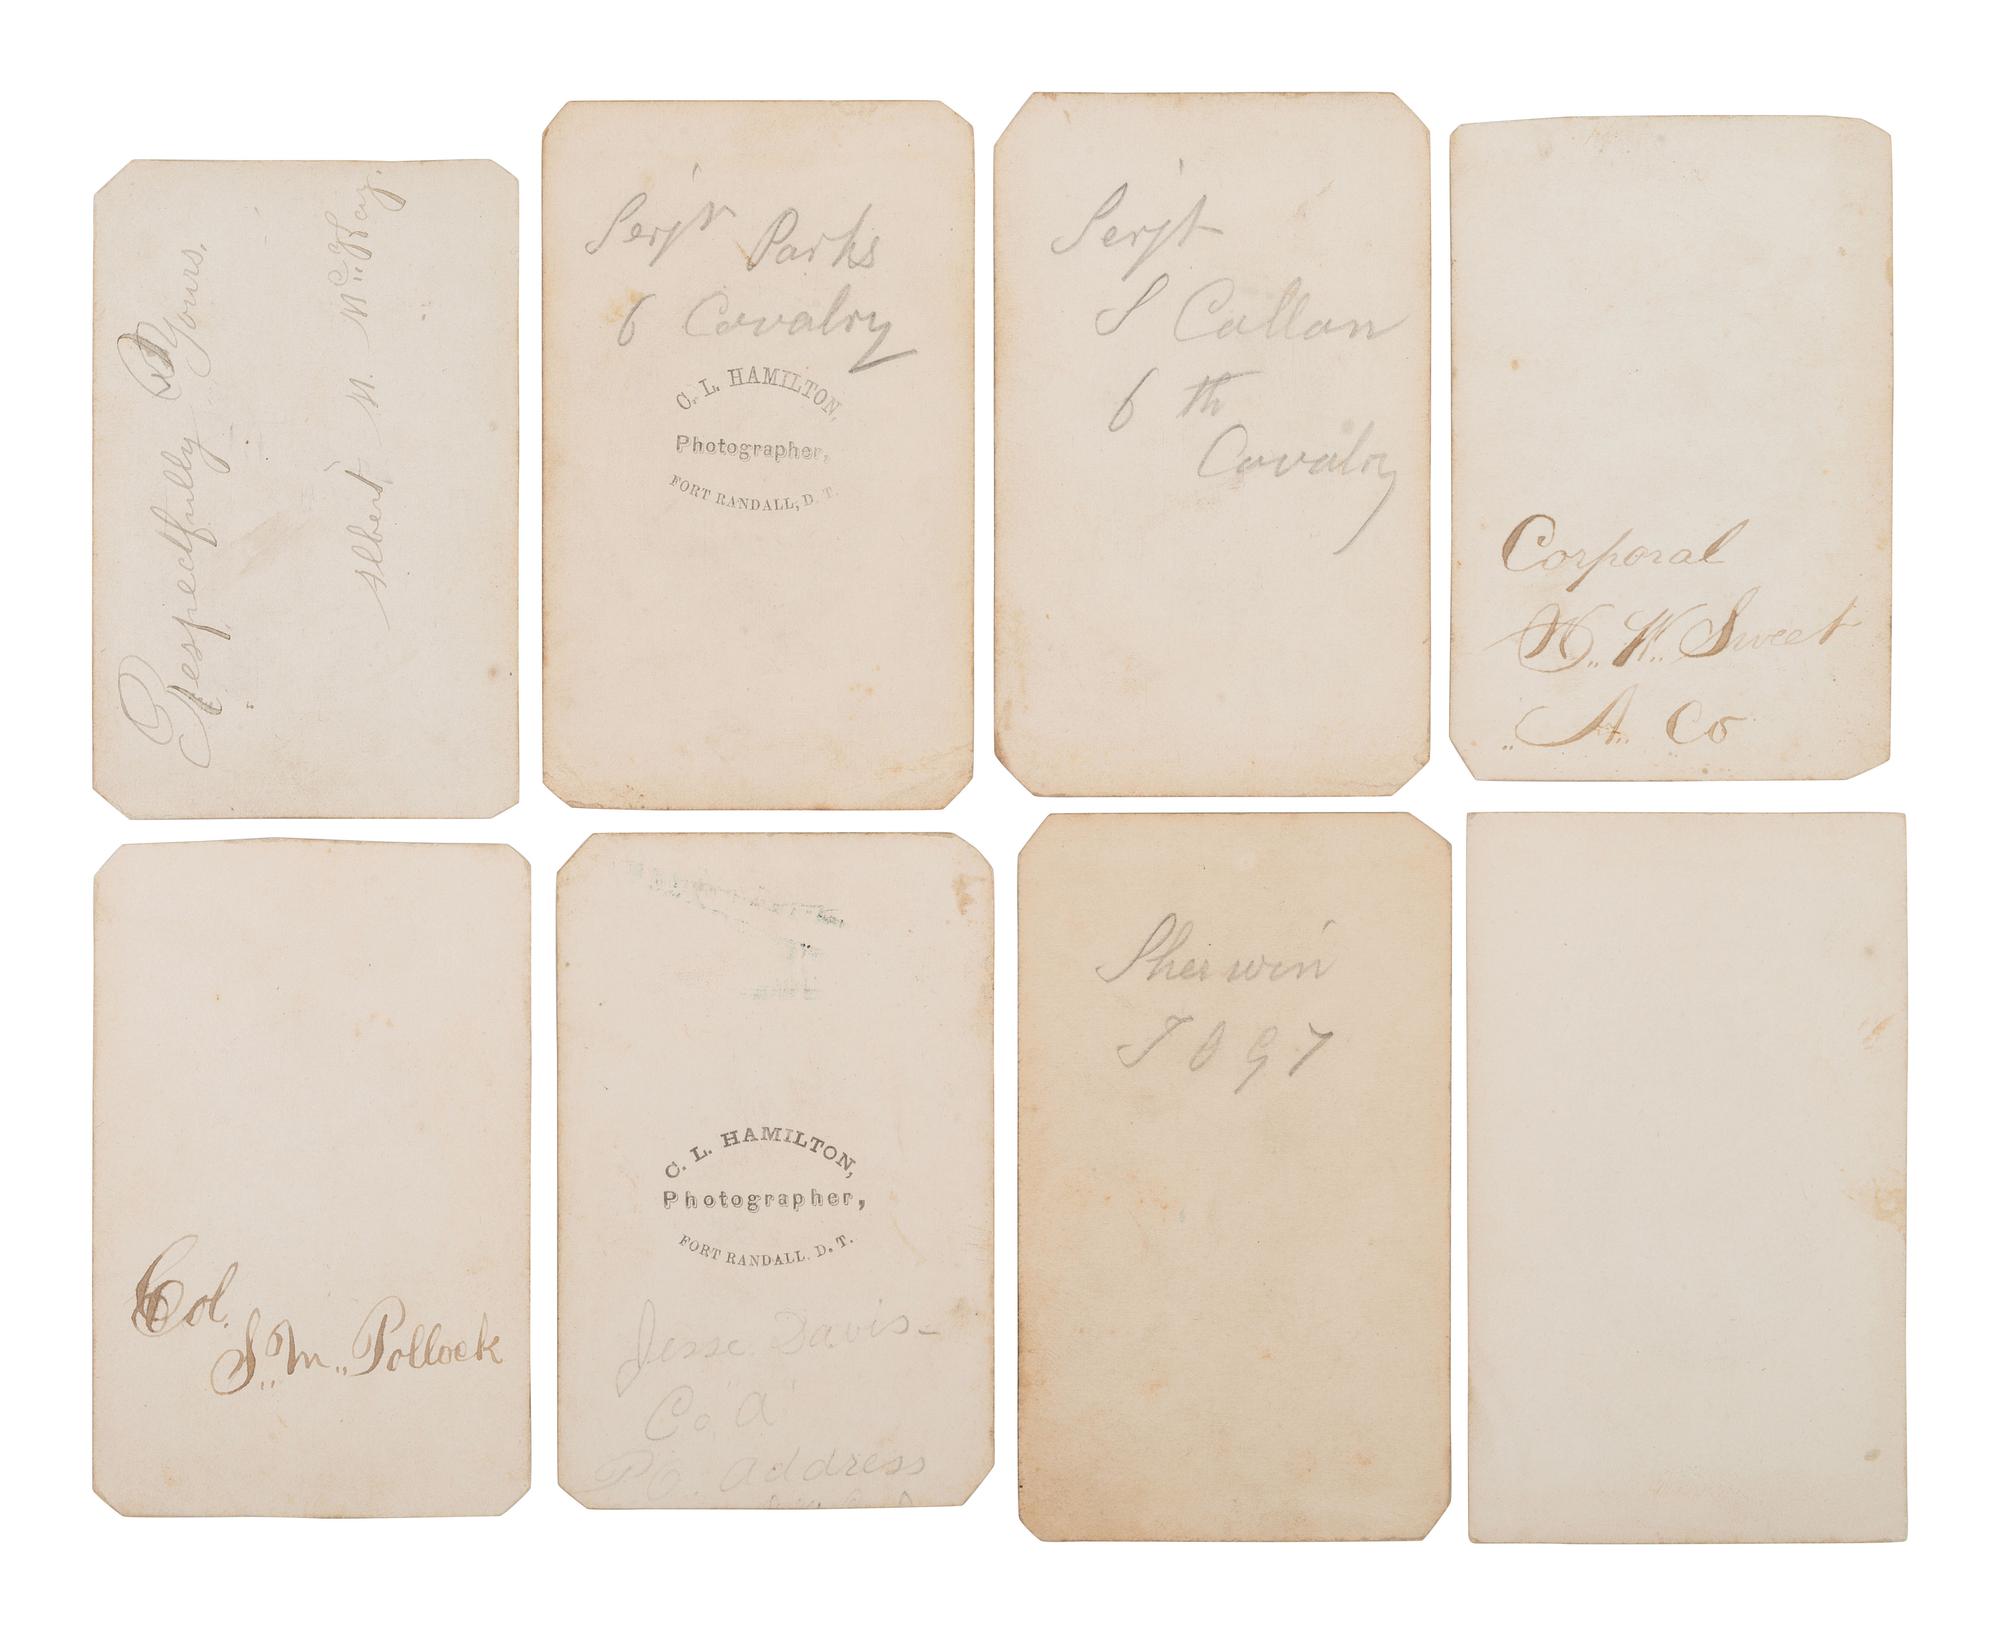 Respectfully Yours,
Albert N. McKay.
Serj't Parks
6 Cavalry
C. L. HAMILTON,
Photographer,
FORT RANDALL, D. T.
Serj't
S Callan
6 th
Cavalry
Corporal
Sweet
A. Co
Col.
S. M. Pollock
C. L. HAMILTON,
Photographer,
FORT RANDALL. D. T.
Jesse Davis-
Co "A"
P.O. address
Sherwin